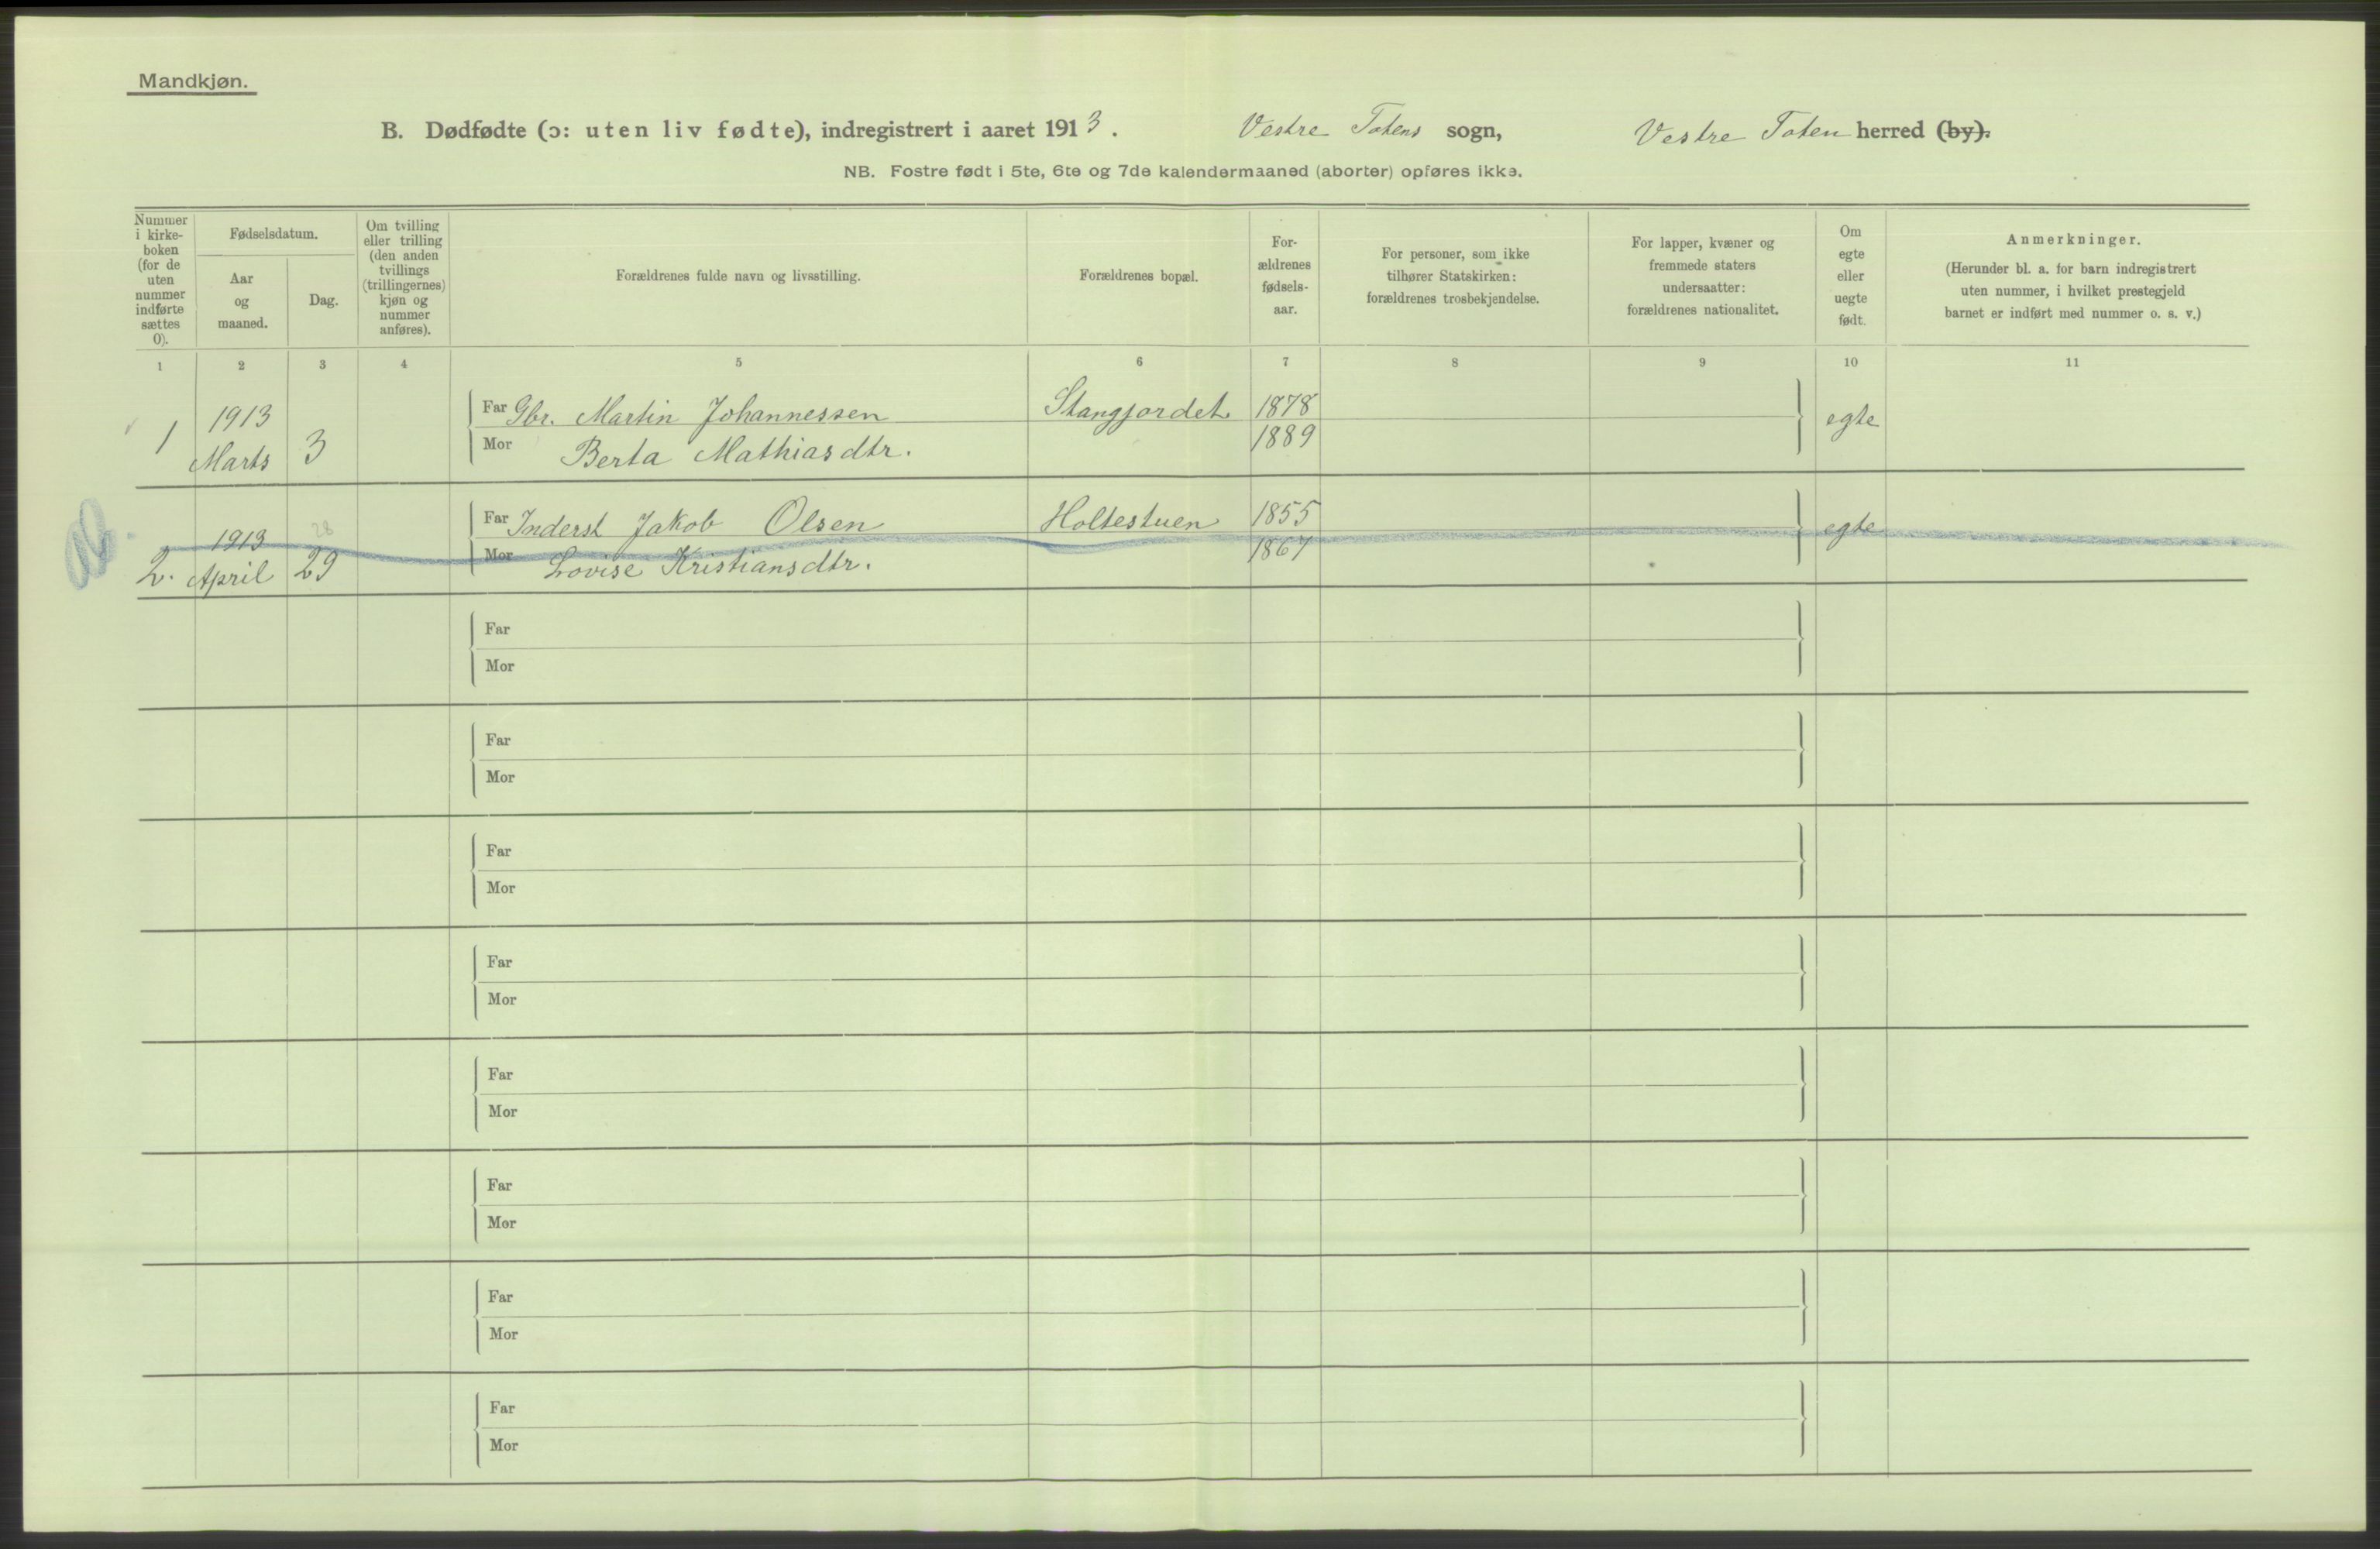 Mandkjøn.
B. Dødfødte (ɔ: uten liv fødte), indregistrert i aaret 1913. Vestre Totens sogn, Vestre Toten herred (by).
NB. Fostre født i 5te, 6te og 7de kalendermaaned (aborter) opføres ikke.
Nummer
i kirke-
boken
(for de
uten
nummer
indførte
sættes
0).
Fødselsdatum.
Aar
og
maaned.
Dag.
Om tvilling
eller trilling
(den anden
tvillings
(trillingernes)
kjøn og
nummer
anføres).
Forældrenes fulde navn og livsstilling.
Forældrenes bopæl.
For-
ældrenes
fødsels-
aar.
For personer, som ikke
tilhører Statskirken:
forældrenes trosbekjendelse.
For lapper, kvæner og
fremmede staters
undersaatter:
forældrenes nationalitet.
Om
egte
eller
uegte
født.
Anmerkninger.
(Herunder bl. a. for barn indregistrert
uten nummer, i hvilket prestegjeld
barnet er indført med nummer o. s. v.)
1 2 3 4 5 6 7 8 9 10 11
1 1913 Marts 3
Far Gbr. Martin Johannessen Stangjordet 1878 egte
Mor Berta Mathiasdtr. 1889
2. 1913 April 29 28
Far Inderst Jakob Olsen Holtestuen 1855 egte
Mor Lovise Kristiansdtr. 1867
Far
Mor
Far
Mor
Far
Mor
Far
Mor
Far
Mor
Far
Mor
Far
Mor
Far
Mor